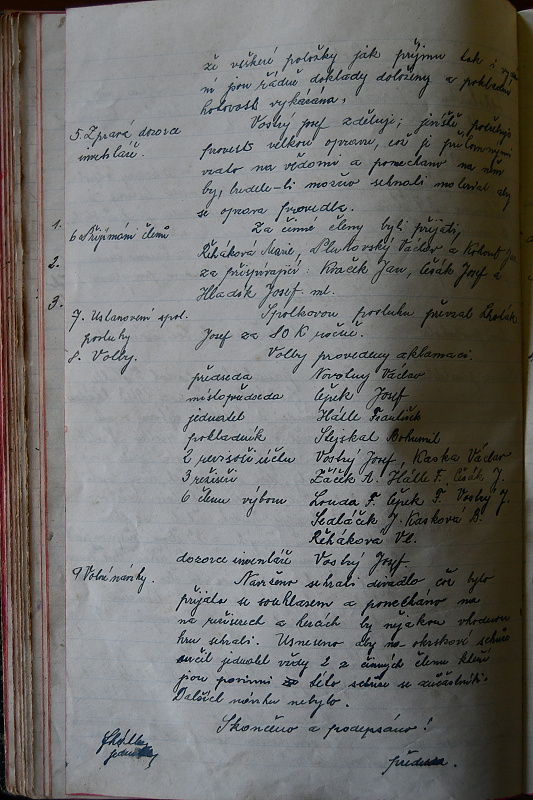 že veškeré položky jak příjmu tak i vydá
ní jsou řádně doklady doloženy a pokladní
hotovost vykázána.
5. Zpráva dozorce
inventáře.
Vostrý Josef sděluje, jeviště potřebuje
provésti velkou opravu, což je přítomnými
vzato na vědomí a ponecháno na něm
by, bude-li možno sehnati materiál aby
se oprava provedla.
1.
6 a Přijímání členů
Za činné členy byli přijati,
Řeháková Marie, Václav a Kohout Jan
2.
za přispívající: Kvaček Jan, Čišák Josef a
Hladík Josef ml.
3.
7. Ustanovení spol.
posluhy
Spolkovou posluhu převzal
Josef za 80 K ročně.
8. Volby.
Volby provedeny aklamací.
předseda Novotný Václav
místopředseda Čepek Josef
jednatel Hátle František
pokladník Stejskal Bohumil
2 revisoři účtů Vostrý Josef, Kaska Václav
3 režiséři Žáček A. Hátle F. Čišák J.
6 členů výboru Louda F. Čepek F. Vostrý J.
Sedláček J. Kasková B.
Řeháková Vl.
dozorce inventáře Vostrý Josef.
9 Volné návrhy.
Navrženo sehrati divadlo což bylo
přijato se souhlasem a ponecháno na
na režiserech a hercích by nějakou vhodnou
hru sehráli. Usneseno aby na okrskové schůze
určil jednatel vždy 2 z činných členů kteří
jsou povinni této schůze se zúčastniti.
Dalších návrhů nebylo.
Skončeno a podepsáno!
jednatel
předseda.